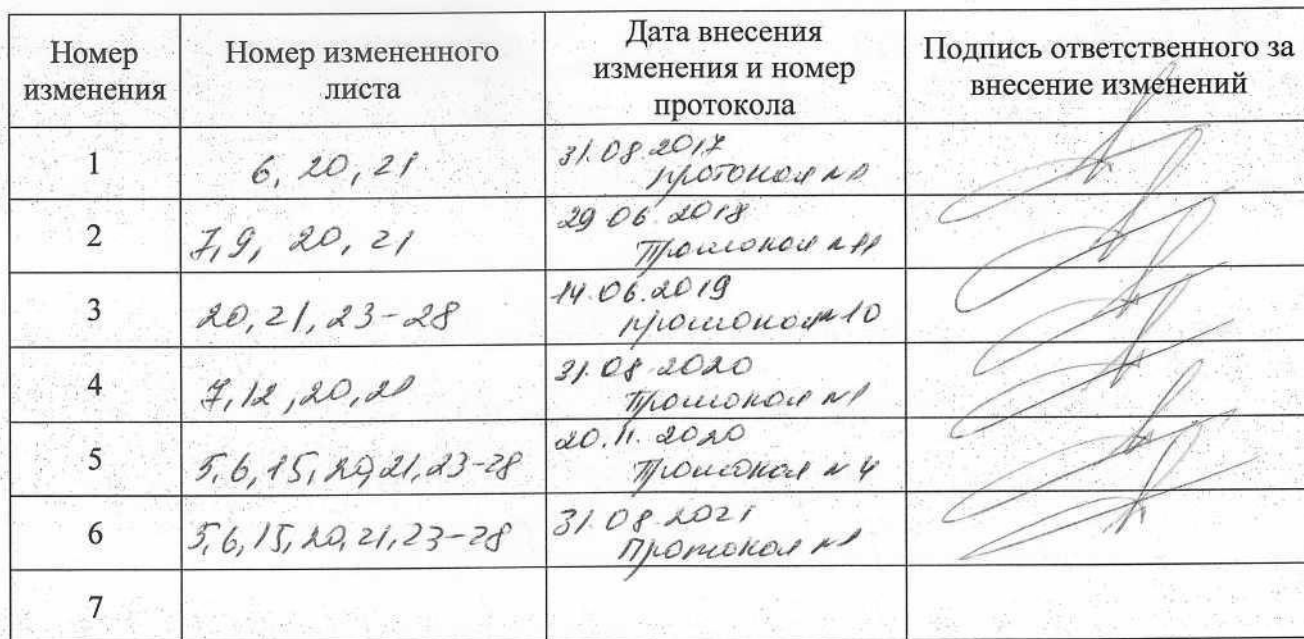 Номер изменения
Номер измененного листа
Дата внесения изменения и номер протокола
Подпись ответственного за внесение изменений
1
6, 20, 21
31.08.2017
протокол №1
2
7, 9, 20, 21
29.06.2018
Протокол №11
3
20, 21, 23-28
14.06.2019
протокол №10
4
7, 12, 20, 21
31.08.2020
Протокол №1
5
5, 6, 15, 20, 21, 23-28
20.11.2020
Протокол №4
6
5, 6, 15, 20, 21, 23-28
31.08.2021
Протокол №1
7